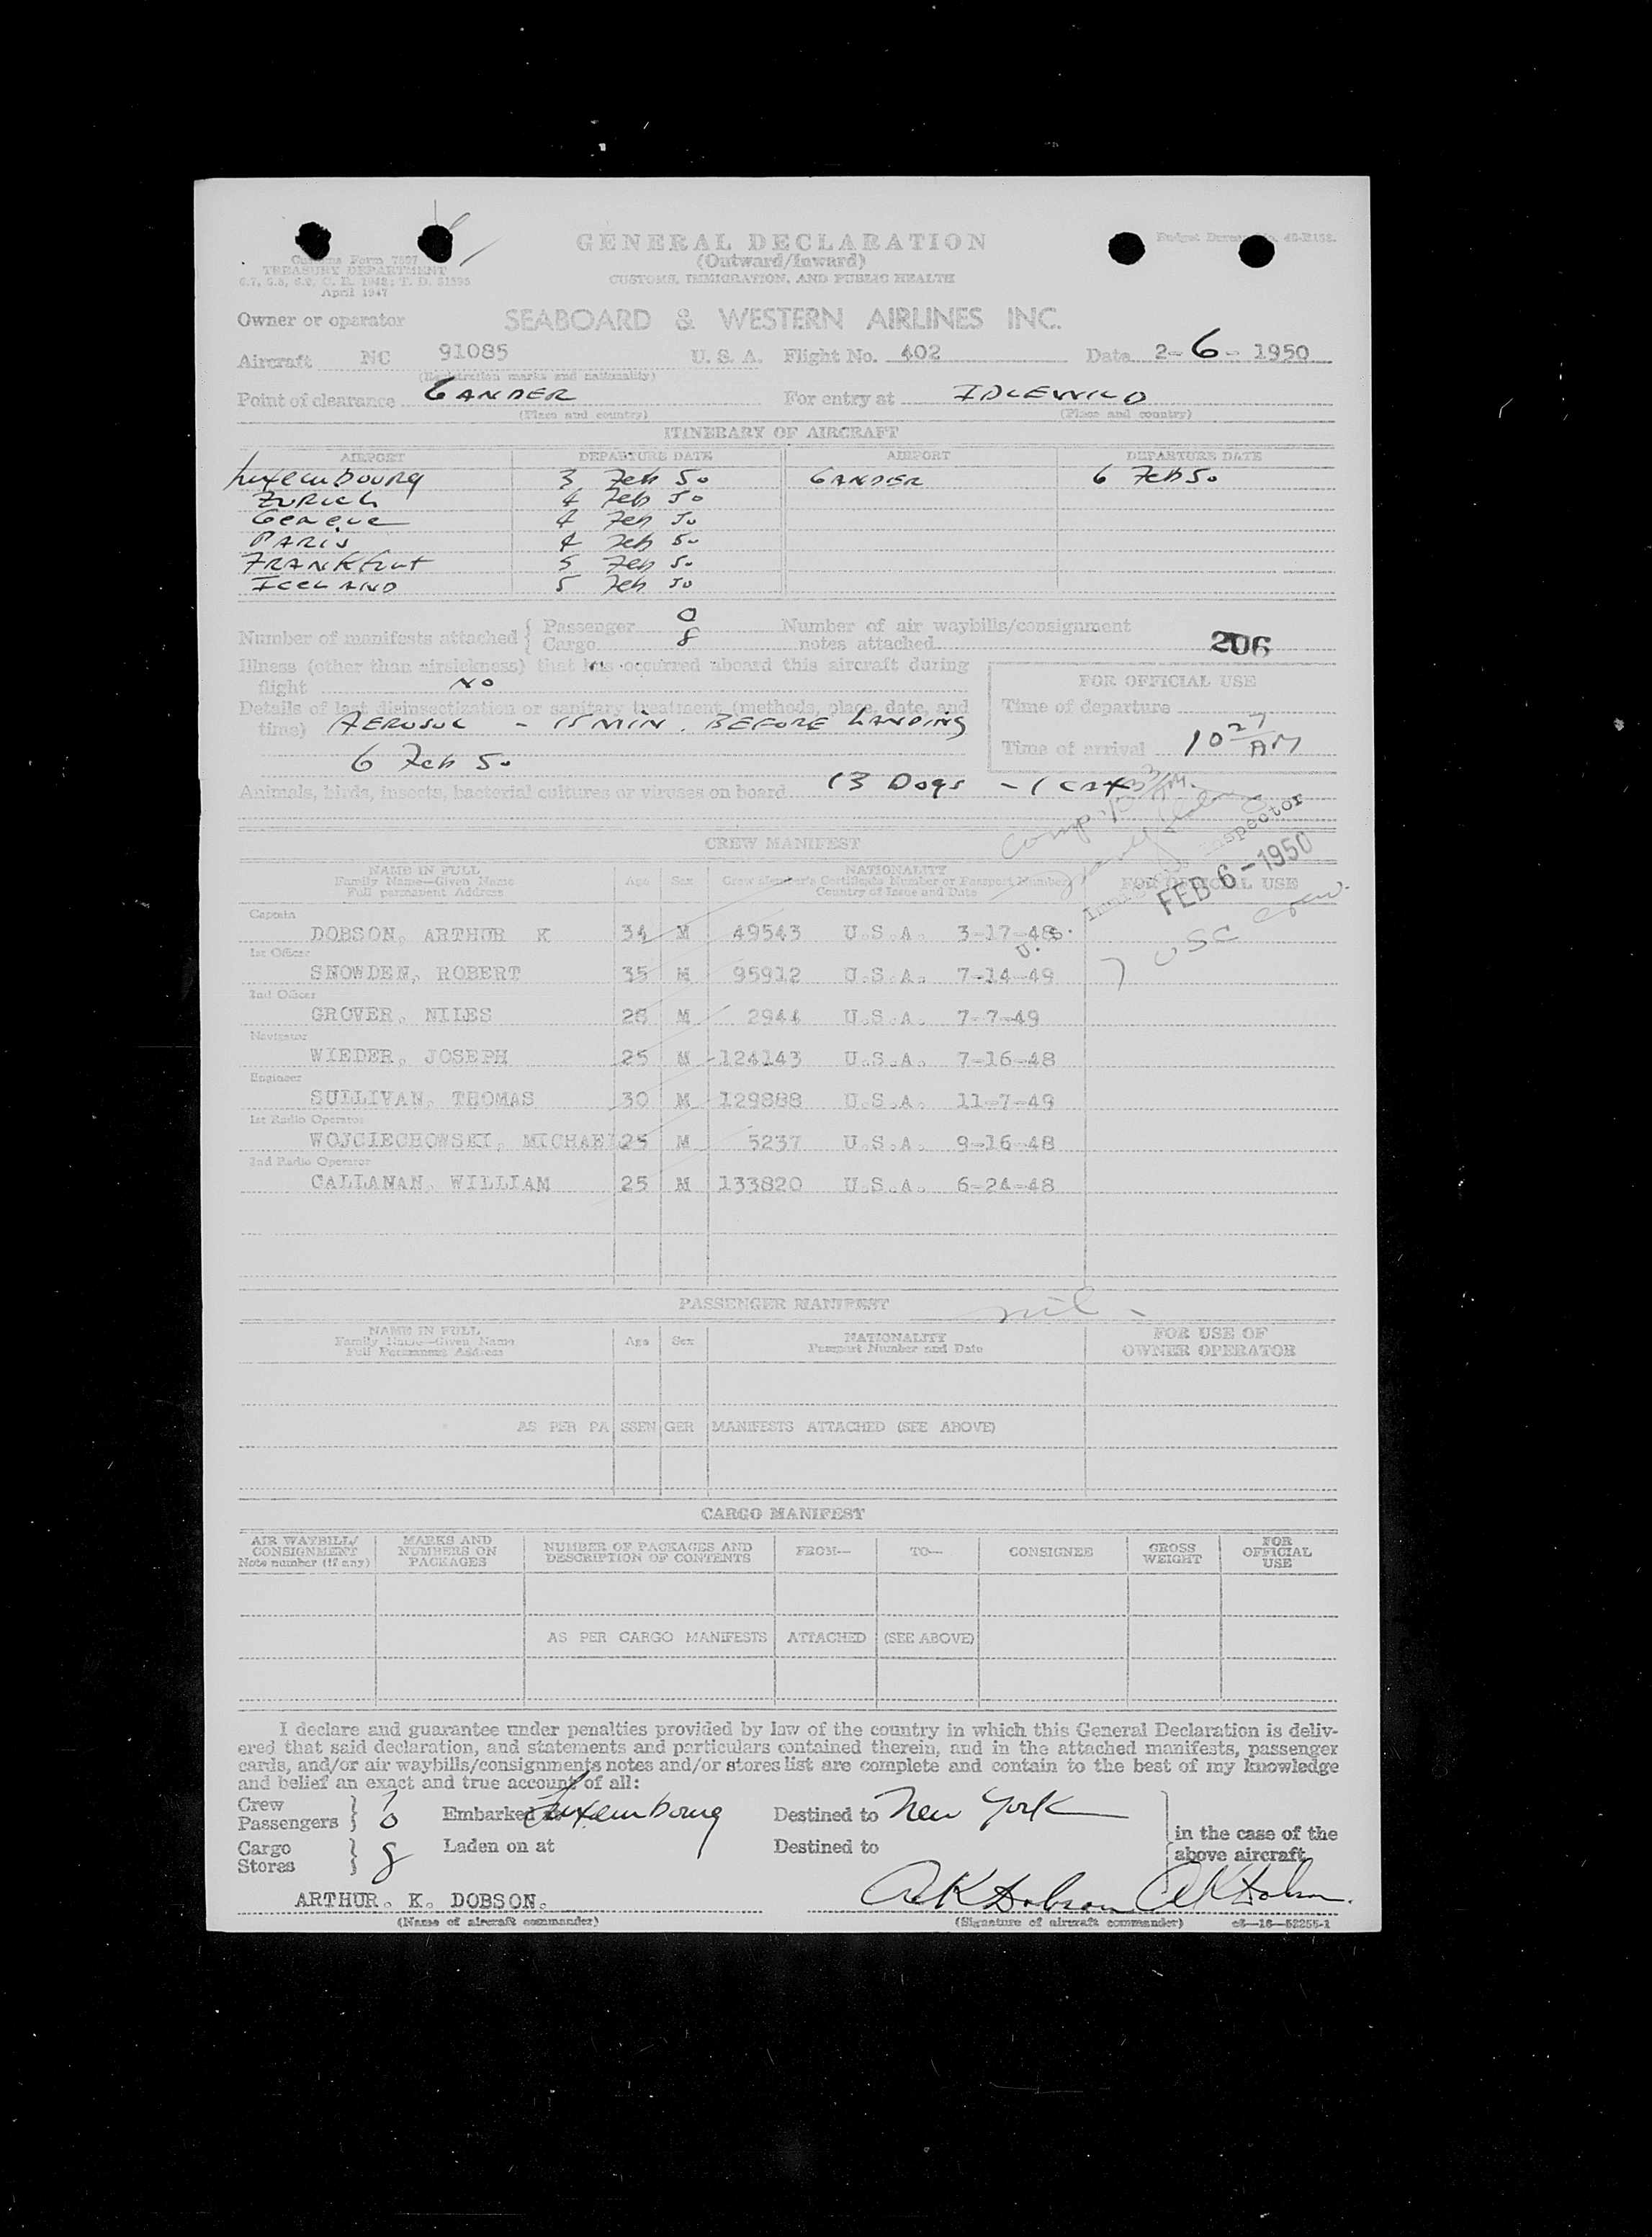 GENERAL DECLARATION
(Outward/Inward)
CUSTOMS, IMMIGRATION, AND PUBLIC HEALTH
Customs Form 7507
TREASURY DEPARTMENT
April 1947
Owner or operator SEABOARD & WESTERN AIRLINES INC.
Aircraft NC 91085 U. S. A. Flight No. 402 Date 2-6-1950
(Registration marks and nationality)
Point of clearance GANDER For entry at IDLEWILD
(Place and country) (Place and country)
ITINERARY OF AIRCRAFT
AIRPORT DEPARTURE DATE AIRPORT DEPARTURE DATE
Luxembourg 3 Feb 50 GANDER 6 Feb 50
ZURich 4 Feb 50
Geneve 4 Feb 50
PARIS 4 Feb 50
FRANKfurt 5 Feb 50
ICELAND 5 Feb 50
Number of manifests attached { Passenger 0 Number of air waybills/consignment
Cargo 8 notes attached 206
Illness (other than airsickness) that has occurred aboard this aircraft during
flight NO
FOR OFFICIAL USE
Details of last disinsectization or sanitary treatment (methods, place, date, and
time) AEROSOL - 15 MIN. BEFORE LANDING
6 Feb 50
Time of departure
Time of arrival 10 27 AM
Animals, birds, insects, bacterial cultures or viruses on board 13 Dogs - 1 cat
Inspector
FEB 6-1950
CREW MANIFEST
NAME IN FULL
Family Name—Given Name
Full permanent Address
Age Sex
NATIONALITY
Crew Member's Certificate Number or Passport Number
Country of Issue and Date
FOR OFFICIAL USE
Captain
DOBSON, ARTHUR K 34 M 49543 U.S.A. 3-17-48
U.S.
7 USC crew.
1st Officer
SNOWDEN, ROBERT 35 M 95912 U.S.A. 7-14-49
2nd Officer
GROVER, NILES 28 M 2944 U.S.A. 7-7-49
Navigator
WIEDER, JOSEPH 25 M 124143 U.S.A. 7-16-48
Engineer
SULLIVAN, THOMAS 30 M 129888 U.S.A. 11-7-49
1st Radio Operator
WOJCIECHOWSKI, MICHAEL 25 M 5237 U.S.A. 9-16-48
2nd Radio Operator
CALLAHAN, WILLIAM 25 M 133820 U.S.A. 6-24-48
PASSENGER MANIFEST nil -
NAME IN FULL
Family Name—Given Name
Full Permanent Address
Age Sex
NATIONALITY
Passport Number and Date
FOR USE OF
OWNER OPERATOR
AS PER PASSENGER MANIFESTS ATTACHED (SEE ABOVE)
CARGO MANIFEST
AIR WAYBILL/
CONSIGNMENT
Note number (if any)
MARKS AND
NUMBERS ON
PACKAGES
NUMBER OF PACKAGES AND
DESCRIPTION OF CONTENTS
FROM— TO— CONSIGNEE
GROSS
WEIGHT
FOR
OFFICIAL
USE
AS PER CARGO MANIFESTS ATTACHED (SEE ABOVE)
I declare and guarantee under penalties provided by law of the country in which this General Declaration is deliv-
ered that said declaration, and statements and particulars contained therein, and in the attached manifests, passenger
cards, and/or air waybills/consignments notes and/or stores list are complete and contain to the best of my knowledge
and belief an exact and true account of all:
Crew 7
Passengers 0 Embarked at Luxembourg Destined to New York
Cargo
Stores 8 Laden on at Destined to
in the case of the
above aircraft
ARTHUR. K. DOBSON. AK Dobson AK Dobson.
(Name of aircraft commander) (Signature of aircraft commander) c3—16—52255-1